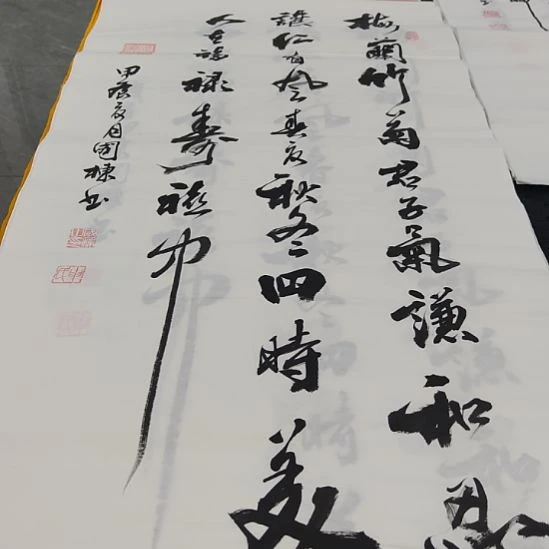 梅蘭竹菊君子氣謙和忍
讓仁者風春夏秋冬四時美
人生福祿壽禧中
甲辰夏月國棟书